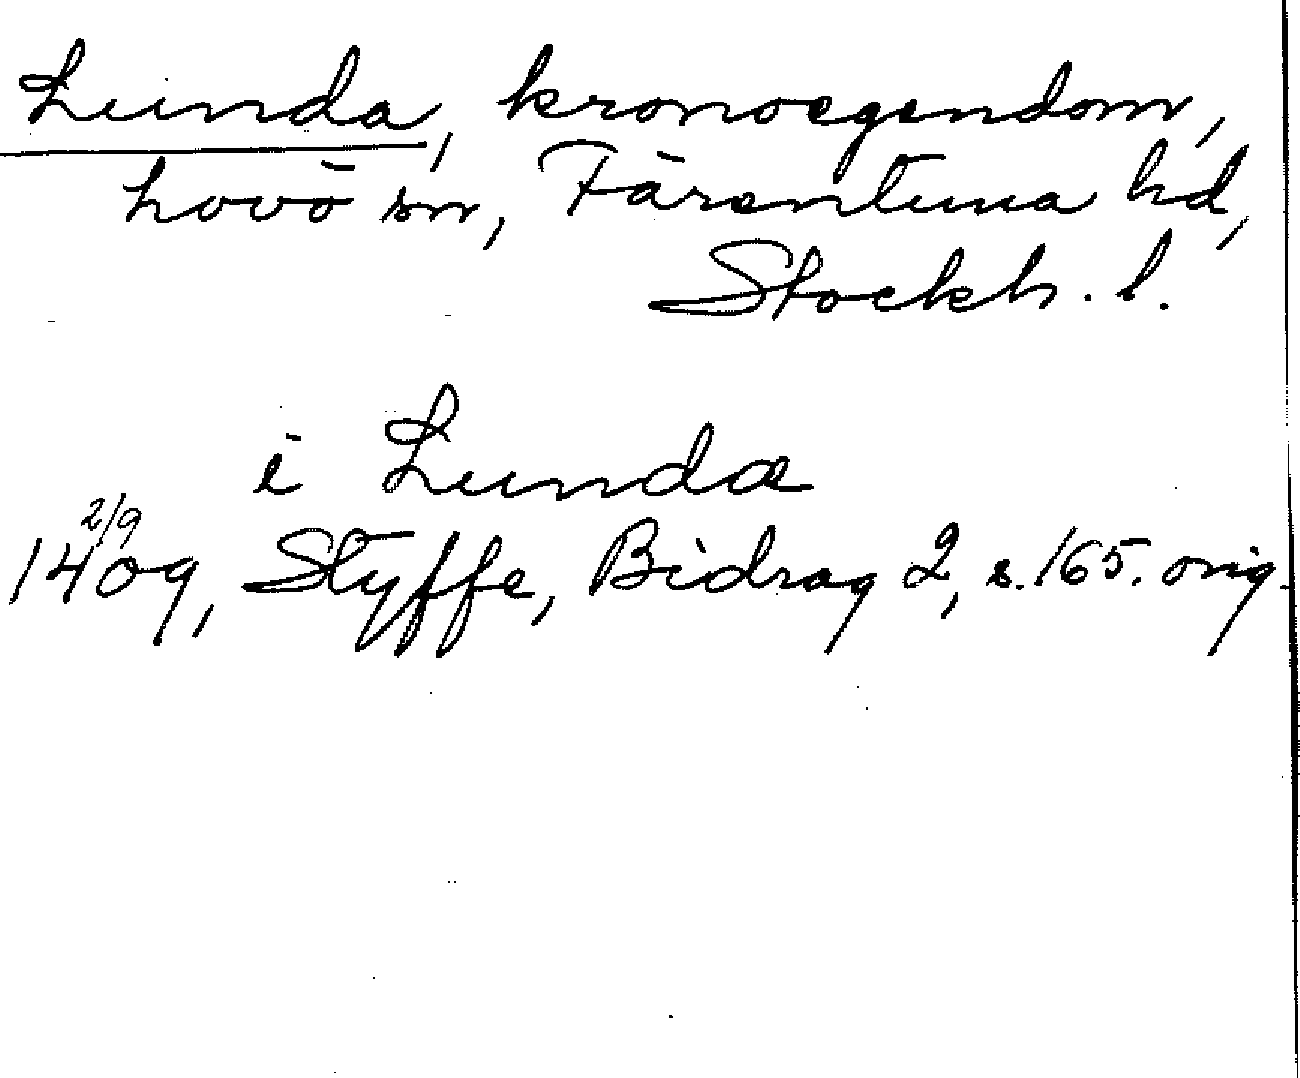 Lunda, kronoegendom,
Lovö sn, Färentuna hd,
Stockh. l.
i Lunda
2/9
1409, Styffe, Bidrag 2, s. 165. orig.